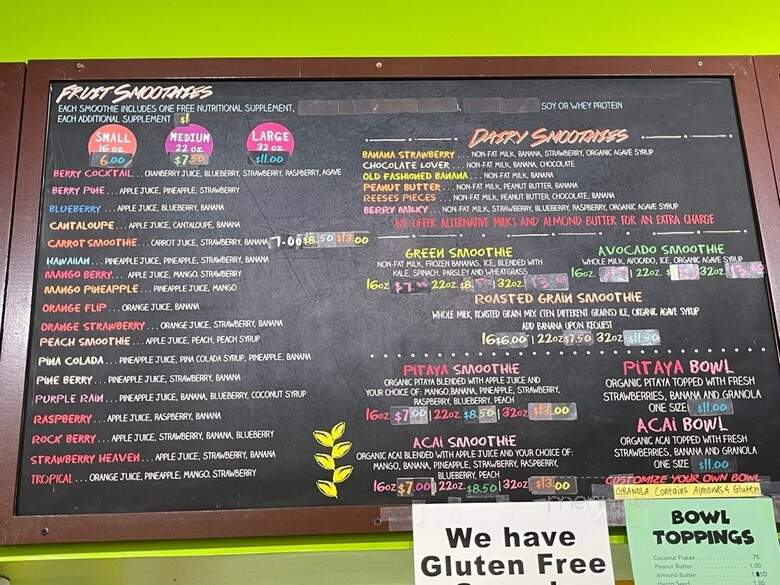 FRUIT SMOOTHIES
EACH SMOOTHIE INCLUDES ONE FREE NUTRITIONAL SUPPLEMENT, SOY OR WHEY PROTEIN
EACH ADDITIONAL SUPPLEMENT $1
SMALL
16 oz.
6.00
MEDIUM
22 oz.
$7.50
LARGE
32 oz.
$11.00
BERRY COCKTAIL... CRANBERRY JUICE, BLUEBERRY, STRAWBERRY, RASPBERRY, AGAVE
BERRY PINE... APPLE JUICE, PINEAPPLE, STRAWBERRY
BLUEBERRY... APPLE JUICE, BLUEBERRY, BANANA
CANTALOUPE... APPLE JUICE, CANTALOUPE, BANANA
CARROT SMOOTHIE... CARROT JUICE, STRAWBERRY, BANANA 7.00 $8.50 $13.00
HAWAIIAN... PINEAPPLE JUICE, PINEAPPLE, STRAWBERRY, BANANA
MANGO BERRY... APPLE JUICE, MANGO, STRAWBERRY
MANGO PINEAPPLE... PINEAPPLE JUICE, MANGO
ORANGE FLIP... ORANGE JUICE, BANANA
ORANGE STRAWBERRY... ORANGE JUICE, STRAWBERRY, BANANA
PEACH SMOOTHIE... APPLE JUICE, PEACH, PEACH SYRUP
PINA COLADA... PINEAPPLE JUICE, PINA COLADA SYRUP, PINEAPPLE, BANANA
PINE BERRY... PINEAPPLE JUICE, STRAWBERRY, BANANA
PURPLE RAIN... PINEAPPLE JUICE, BANANA, BLUEBERRY, COCONUT SYRUP
RASPBERRY... APPLE JUICE, RASPBERRY, BANANA
ROCK BERRY... APPLE JUICE, STRAWBERRY, BANANA, BLUEBERRY
STRAWBERRY HEAVEN... APPLE JUICE, STRAWBERRY, BANANA
TROPICAL... ORANGE JUICE, PINEAPPLE, MANGO, STRAWBERRY
DAIRY SMOOTHIES
BANANA STRAWBERRY... NON-FAT MILK, BANANA, STRAWBERRY, ORGANIC AGAVE SYRUP
CHOCOLATE LOVER... NON-FAT MILK, BANANA, CHOCOLATE
OLD FASHIONED BANANA... NON-FAT MILK, BANANA
PEANUT BUTTER... NON-FAT MILK, PEANUT BUTTER, BANANA
REESES PIECES... NON-FAT MILK, PEANUT BUTTER, CHOCOLATE, BANANA
BERRY MILKY... NON-FAT MILK, STRAWBERRY, BLUEBERRY, RASPBERRY, ORGANIC AGAVE SYRUP
WE OFFER ALTERNATIVE MILKS AND ALMOND BUTTER FOR AN EXTRA CHARGE
GREEN SMOOTHIE
NON-FAT MILK, FROZEN BANANAS, ICE, BLENDED WITH
KALE, SPINACH, PARSLEY AND WHEATGRASS
16oz 22oz 32oz
AVOCADO SMOOTHIE
WHOLE MILK, AVOCADO, ICE, ORGANIC AGAVE SYRUP
16oz 22oz 32oz
ROASTED GRAIN SMOOTHIE
WHOLE MILK, ROASTED GRAIN MIX (TEN DIFFERENT GRAINS) ICE, ORGANIC AGAVE SYRUP
ADD BANANA UPON REQUEST
16 $6.00 | 22oz $7.50 32oz $11.50
PITAYA SMOOTHIE
ORGANIC PITAYA BLENDED WITH APPLE JUICE AND
YOUR CHOICE OF: MANGO, BANANA, PINEAPPLE, STRAWBERRY,
RASPBERRY, BLUEBERRY, PEACH
16oz $7.00 | 22oz $8.50 | 32oz $13.00
ACAI SMOOTHIE
ORGANIC ACAI BLENDED WITH APPLE JUICE AND YOUR CHOICE OF:
MANGO, BANANA, PINEAPPLE, STRAWBERRY, RASPBERRY,
BLUEBERRY, PEACH
16oz $7.00 | 22oz $8.50 | 32oz $13.00
PITAYA BOWL
ORGANIC PITAYA TOPPED WITH FRESH
STRAWBERRIES, BANANA AND GRANOLA
ONE SIZE $11.00
ACAI BOWL
ORGANIC ACAI TOPPED WITH FRESH
STRAWBERRIES, BANANA AND GRANOLA
ONE SIZE $11.00
CUSTOMIZE YOUR OWN BOWL
GRANOLA Contains Almonds & Gluten
We have
Gluten Free
BOWL
TOPPINGS
Coconut Flakes .75
Peanut Butter 1.00
Almond Butter 1.50
Hemp Seed 1.00